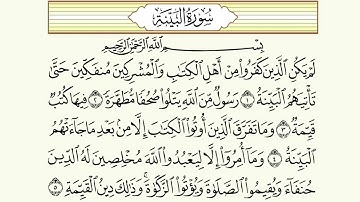 سُورَةُ البَيِّنَةِ
بِسْمِ ٱللَّهِ ٱلرَّحْمَٰنِ ٱلرَّحِيمِ
لَمْ يَكُنِ ٱلَّذِينَ كَفَرُوا۟ مِنْ أَهْلِ ٱلْكِتَٰبِ وَٱلْمُشْرِكِينَ مُنفَكِّينَ حَتَّىٰ
تَأْتِيَهُمُ ٱلْبَيِّنَةُ ١ رَسُولٌ مِّنَ ٱللَّهِ يَتْلُوا۟ صُحُفًا مُّطَهَّرَةً ٢ فِيهَا كُتُبٌ
قَيِّمَةٌ ٣ وَمَا تَفَرَّقَ ٱلَّذِينَ أُوتُوا۟ ٱلْكِتَٰبَ إِلَّا مِنۢ بَعْدِ مَا جَآءَتْهُمُ
ٱلْبَيِّنَةُ ٤ وَمَآ أُمِرُوٓا۟ إِلَّا لِيَعْبُدُوا۟ ٱللَّهَ مُخْلِصِينَ لَهُ ٱلدِّينَ
حُنَفَآءَ وَيُقِيمُوا۟ ٱلصَّلَوٰةَ وَيُؤْتُوا۟ ٱلزَّكَوٰةَ ۚ وَذَٰلِكَ دِينُ ٱلْقَيِّمَةِ ٥